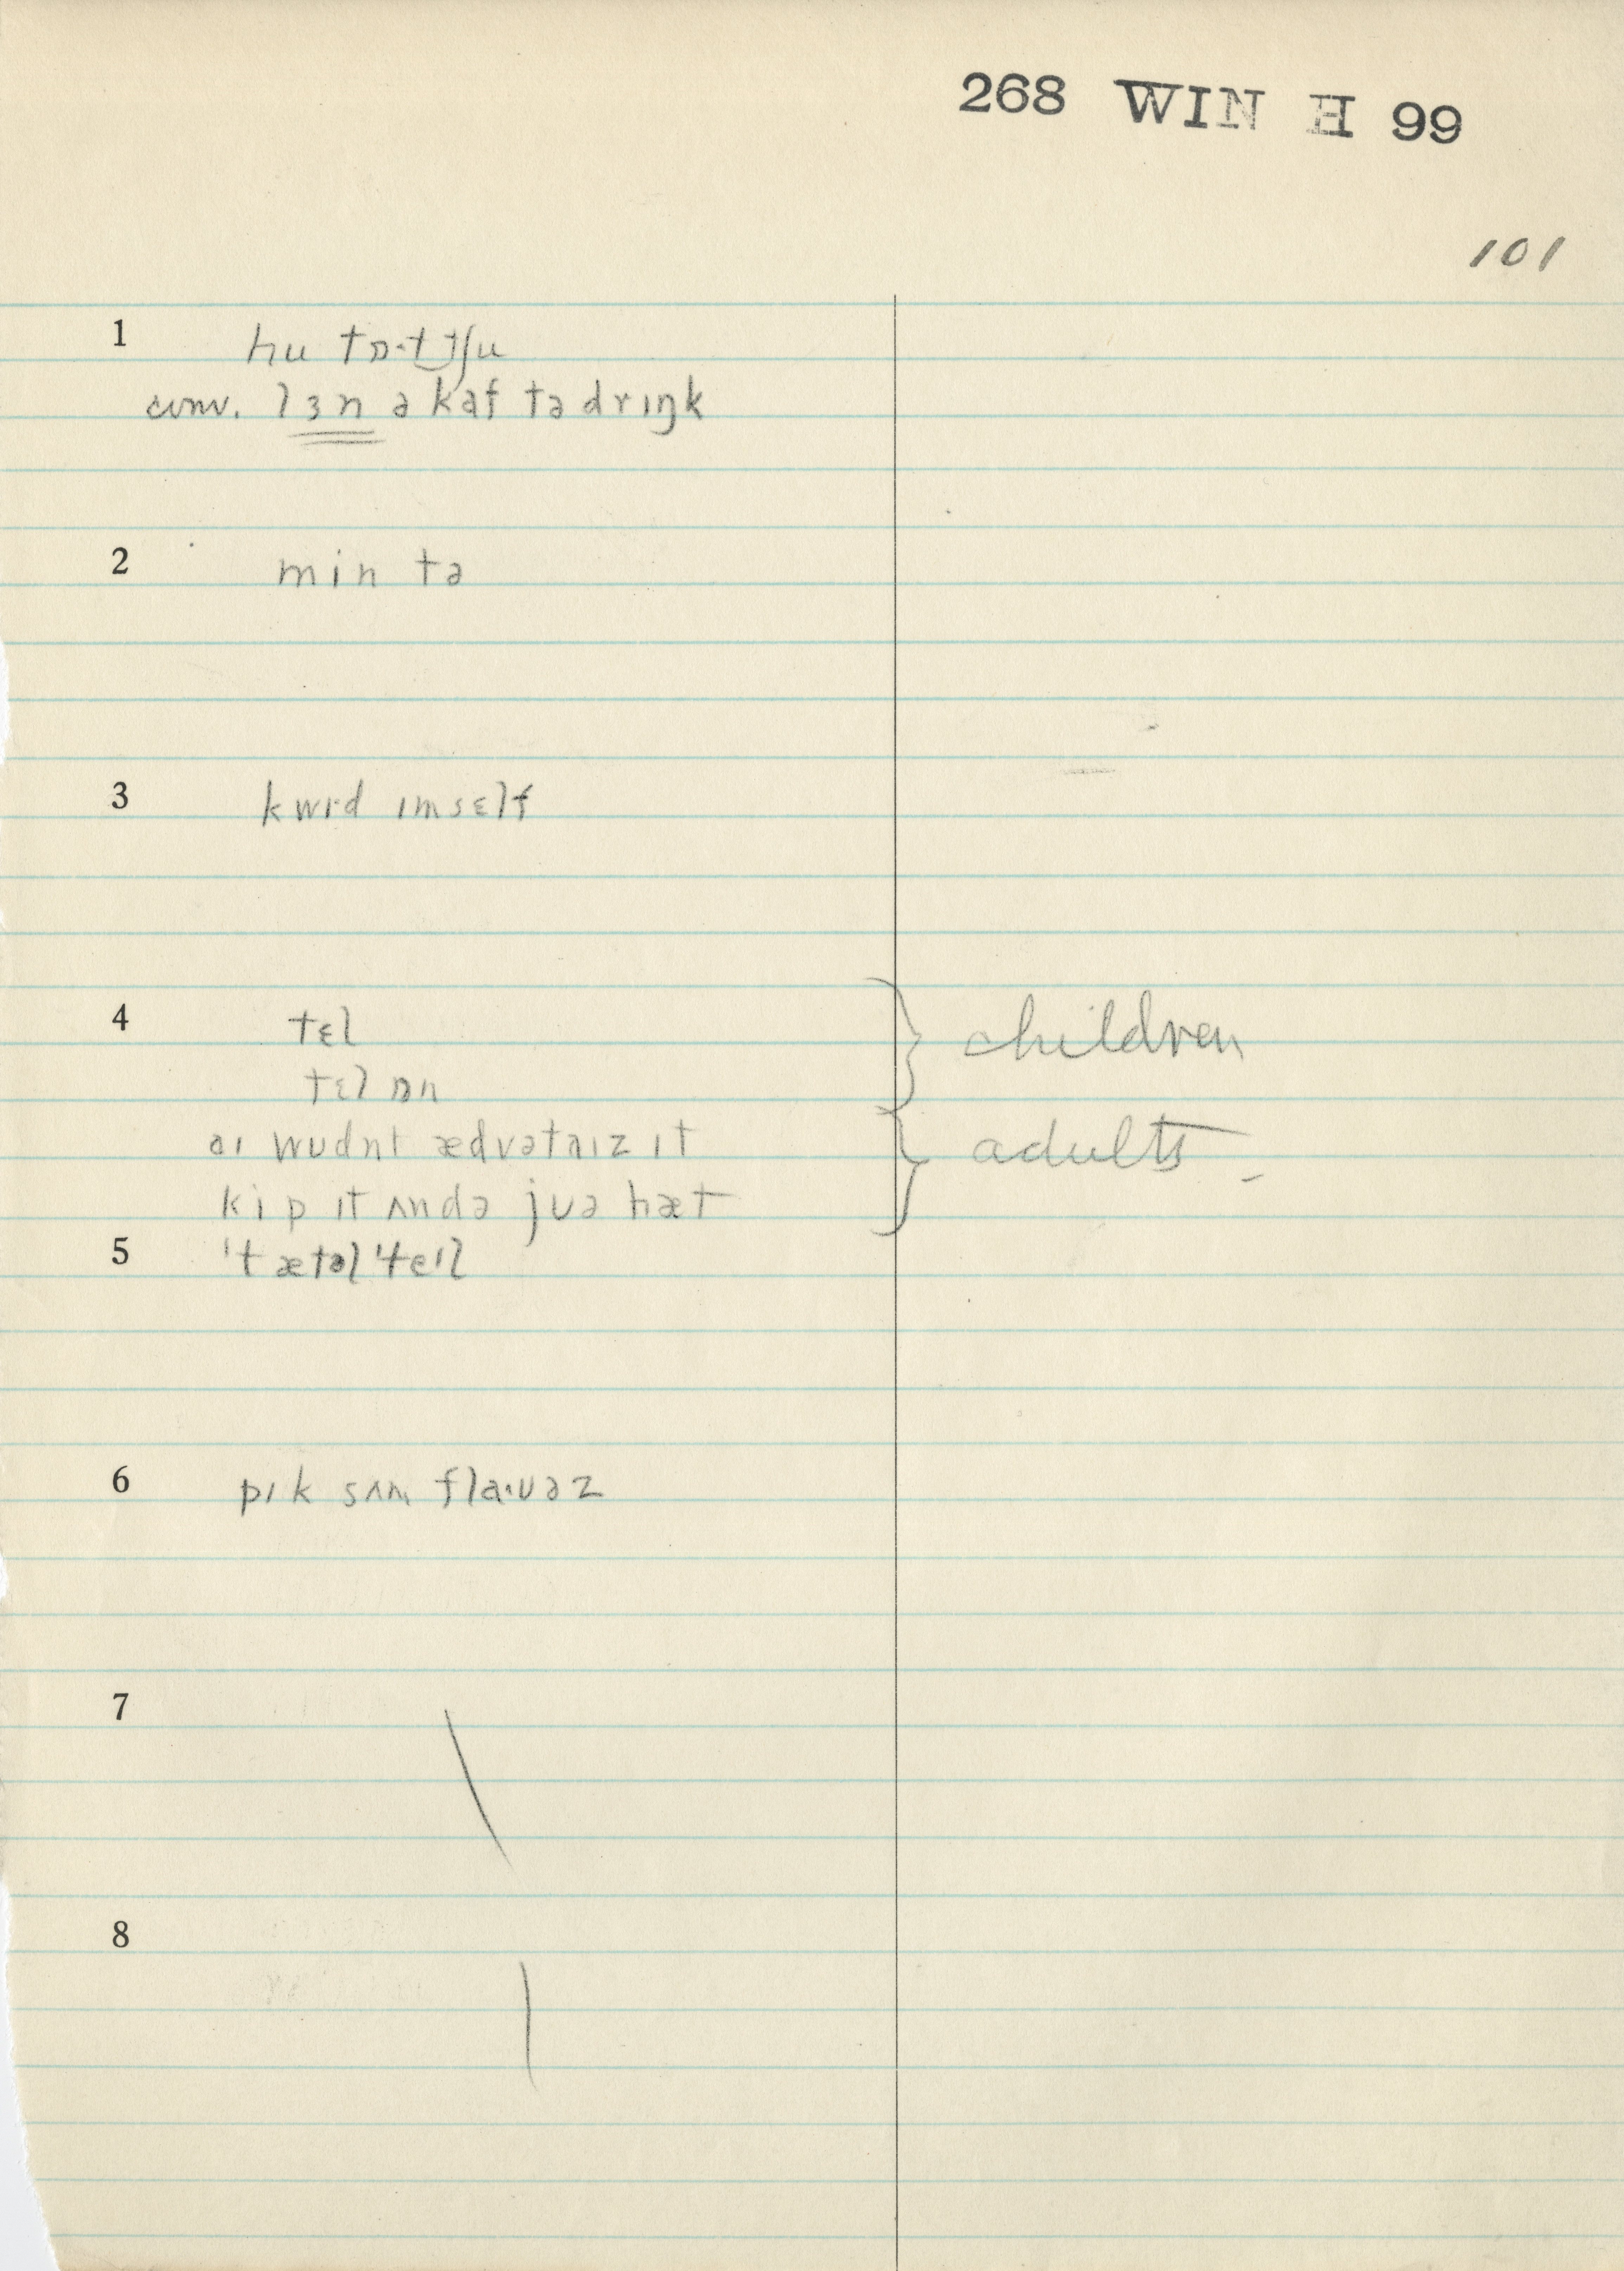 268 WIN H 99
101
1 hu tɒ·t tʃu
conv. lɜn ə kaf tə drɪŋk
2 min tə
3 kwɪd ɪmsɛlf
4 tɛl children
tɛl ɒn
aɪ wʊdnt ædvətaɪz ɪt adults
kip ɪt ʌndə jʊə hæt
5 ˈtætəlˈteɪl
6 pɪk sʌm fla·ʊəz
7
8